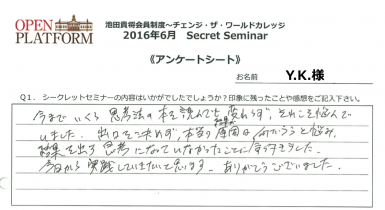 OPEN
PLATFORM
池田貴将会員制度~チェンジ・ザ・ワールドカレッジ
2016年6月 Secret Seminar
《アンケートシート》
お名前 Y.K.様
Q1．シークレットセミナーの内容はいかがでしたでしょうか？印象に残ったことや感想をご記入下さい。
今まで いくら 思考法の本を読んでも 結果が 変わらず、それこそ悩んで
いました。出口を決めず、本当の原因は 何だろうと悩み、
結果を出す 思考に なっていなかったことに 気づきました。
今日から 実践していきたいと思います。ありがとうございました。